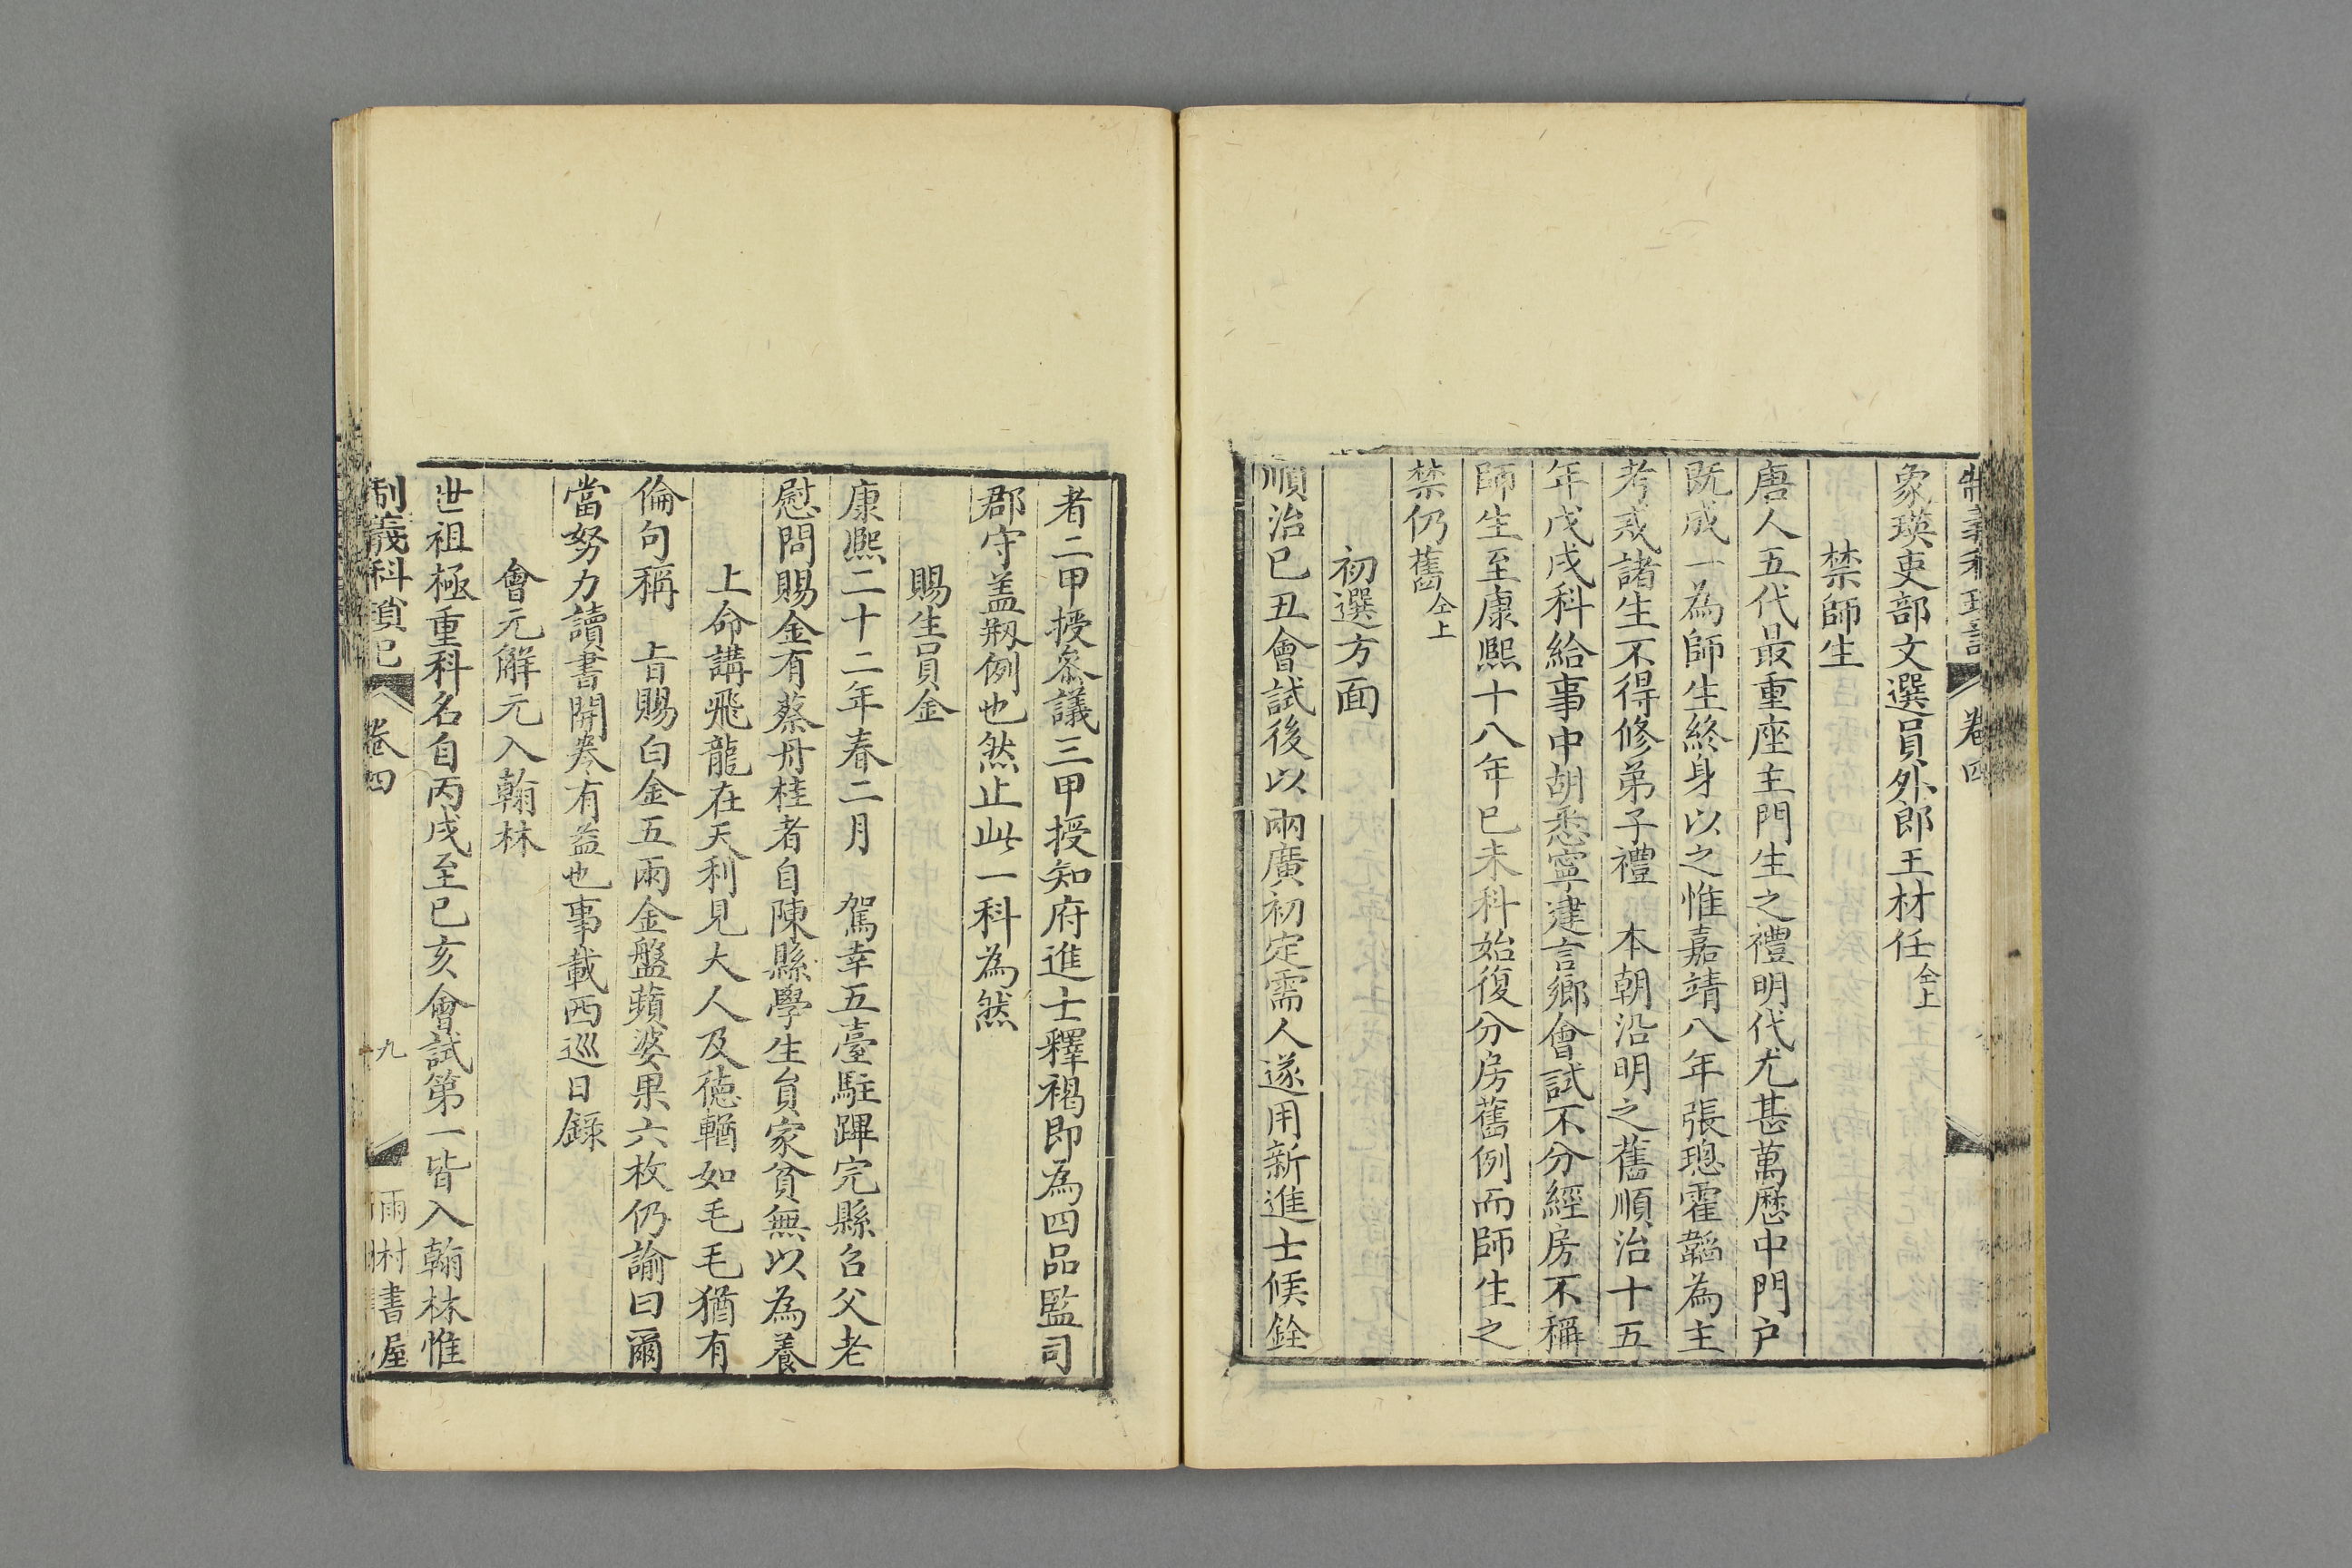 卷四
象瑛吏部文選員外郎王材任仝上
禁師生
唐人五代最重座主門生之禮明代尤甚萬歷中門户
既成一為師生終身以之惟嘉靖八年張璁霍韜為主
考戒諸生不得修弟子禮　本朝沿明之舊順治十五
年戊戌科給事中胡悉寧建言鄉會試不分經房不稱
師生至康熙十八年巳未科始復分房舊例而師生之
禁仍舊仝上
初選方面
順治巳丑會試後以兩廣初定需人遂用新進士候銓
者二甲授叅議三甲授知府進士釋褐即為四品監司
郡守盖剏例也然止此一科為然
賜生員金
康熙二十二年春二月　駕幸五臺駐蹕完縣召父老
慰問賜金有蔡丹桂者自陳縣學生員家貧無以為養
上命講飛龍在天利見大人及德輶如毛毛猶有
倫句稱　旨賜白金五兩金盤蘋婆果六枚仍諭曰爾
當努力讀書開卷有益也事載西巡日錄
會元解元入翰林
世祖極重科名自丙戌至巳亥會試第一皆入翰林惟
制義科瑣記　卷四　九　雨村書屋